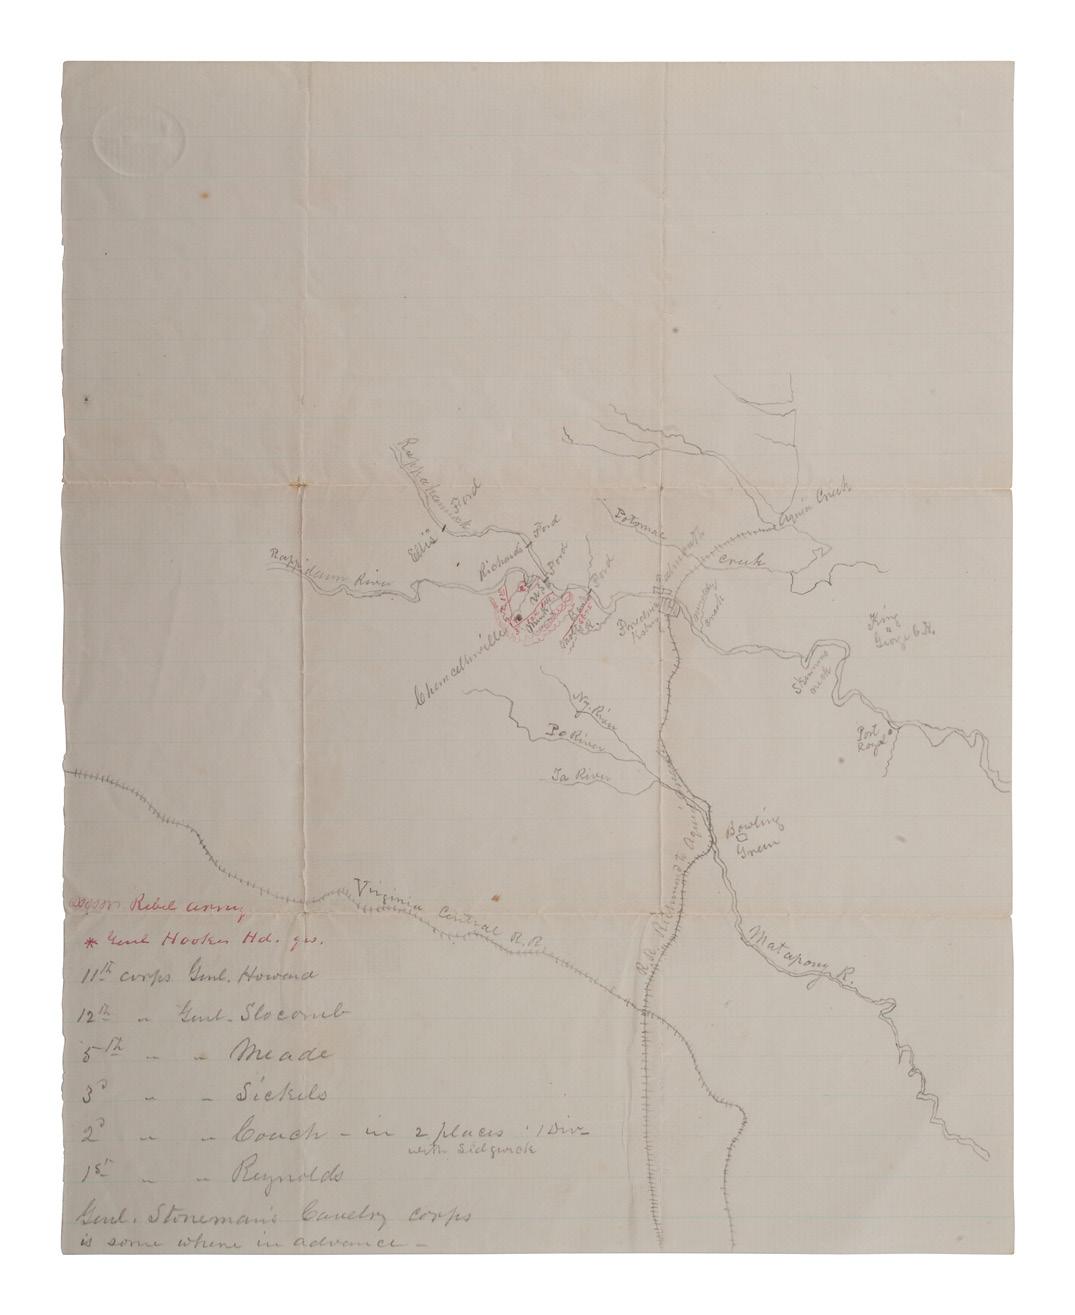 Rappahannock
Ford
Ellis
Richards Ford
Ford
Ford
Rappidann River
Potomac
Creek
Aquia Creek
Falmouth
Chancellorsville
King
George C.H.
Port
Royal
Ny. River
Po River
Ta River
Bowling
Green
R.R. Richmond to Aquia
Virginia Central R.R.
Matapony R.
Rebel army
* Genl Hooker Hd. qrs.
11th corps Genl. Howard
12th " Genl. Slocomb
5th " " Meade
3d " " Sickels
2d " " Couch - in 2 places : 1 Div-
with Sidgwick
1st " " Reynolds
Genl. Stoneman's Cavelry corps
is some where in advance -